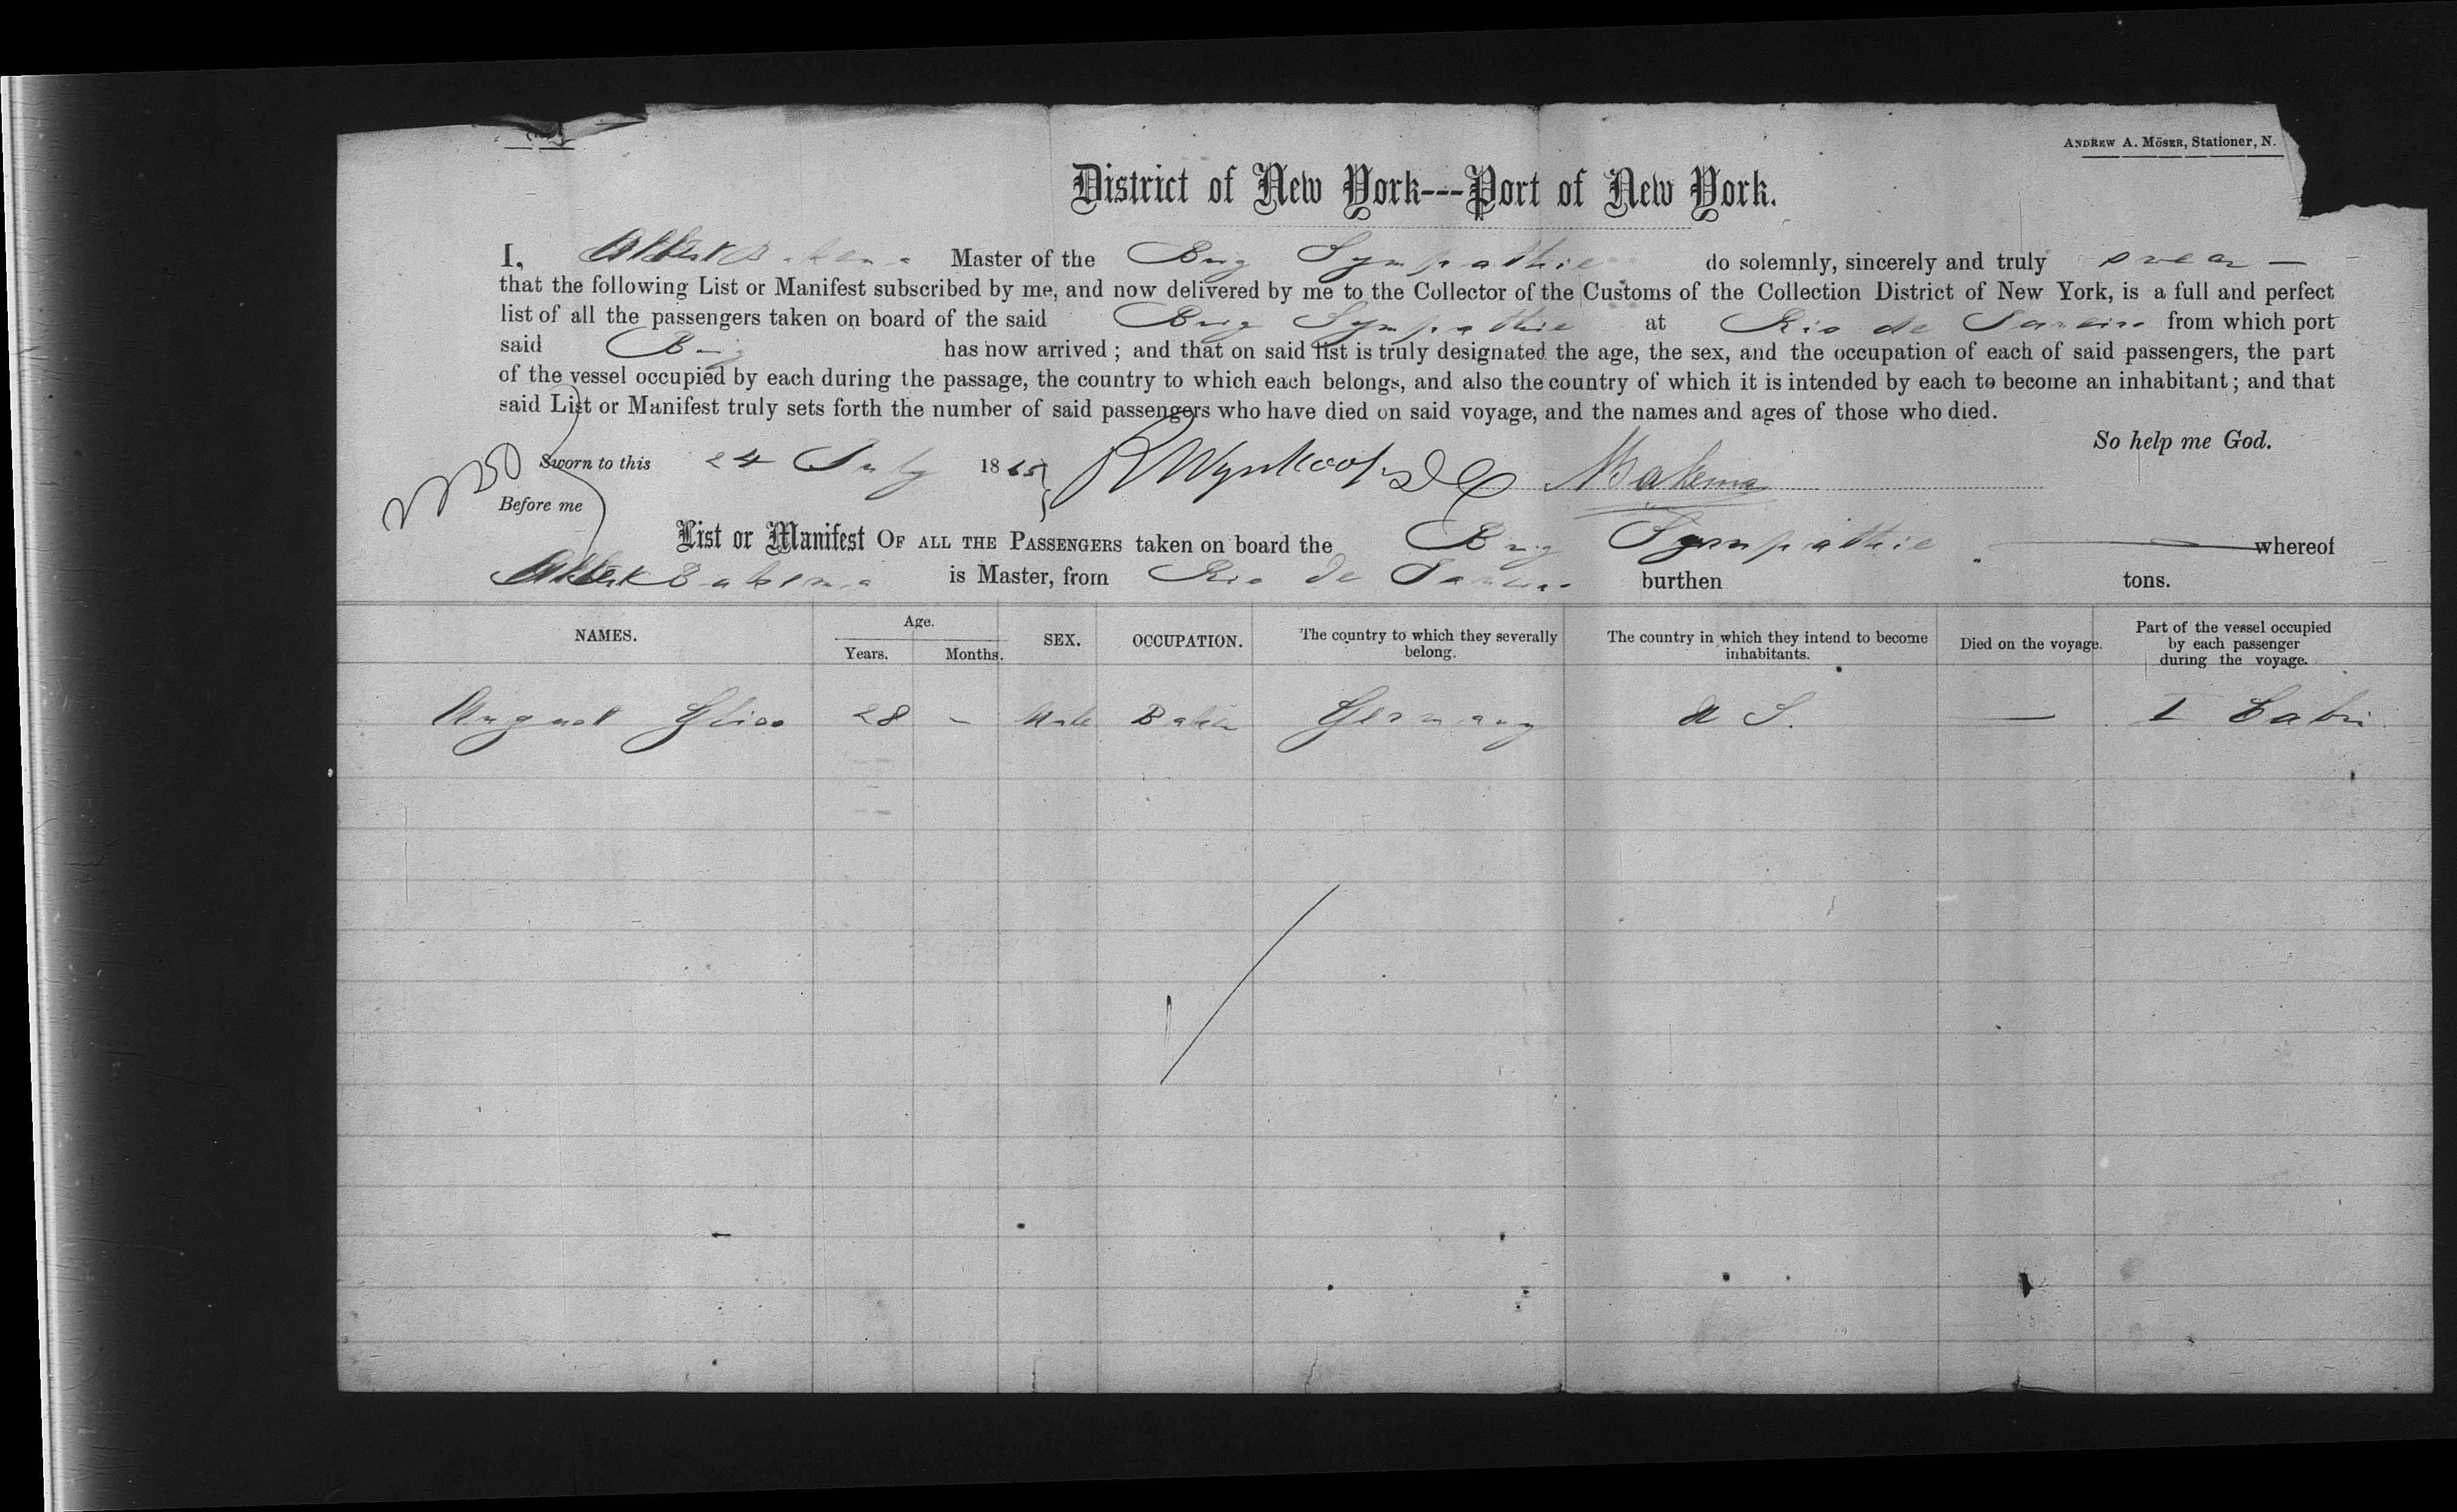 ANDREW A. MÖSER, Stationer, N.
District of New York---Port of New York.
I, Albert Bakema Master of the Brig Sympathie do solemnly, sincerely and truly swear —
that the following List or Manifest subscribed by me, and now delivered by me to the Collector of the Customs of the Collection District of New York, is a full and perfect
list of all the passengers taken on board of the said Brig Sympathie at Rio de Janeiro from which port
said Brig has now arrived; and that on said list is truly designated the age, the sex, and the occupation of each of said passengers, the part
of the vessel occupied by each during the passage, the country to which each belongs, and also the country of which it is intended by each to become an inhabitant; and that
said List or Manifest truly sets forth the number of said passengers who have died on said voyage, and the names and ages of those who died.
So help me God.
Sworn to this 24 July 1865 R Wynkoop DC ABakema
Before me
List or Manifest OF ALL THE PASSENGERS taken on board the Brig Sympathie whereof
Albert Bakema is Master, from Rio de Janeiro burthen tons.
NAMES. Age. Years. Months. SEX. OCCUPATION. The country to which they severally belong. The country in which they intend to become inhabitants. Died on the voyage. Part of the vessel occupied by each passenger during the voyage.
August 28 – Male Baker Germany U S. — I Cabin